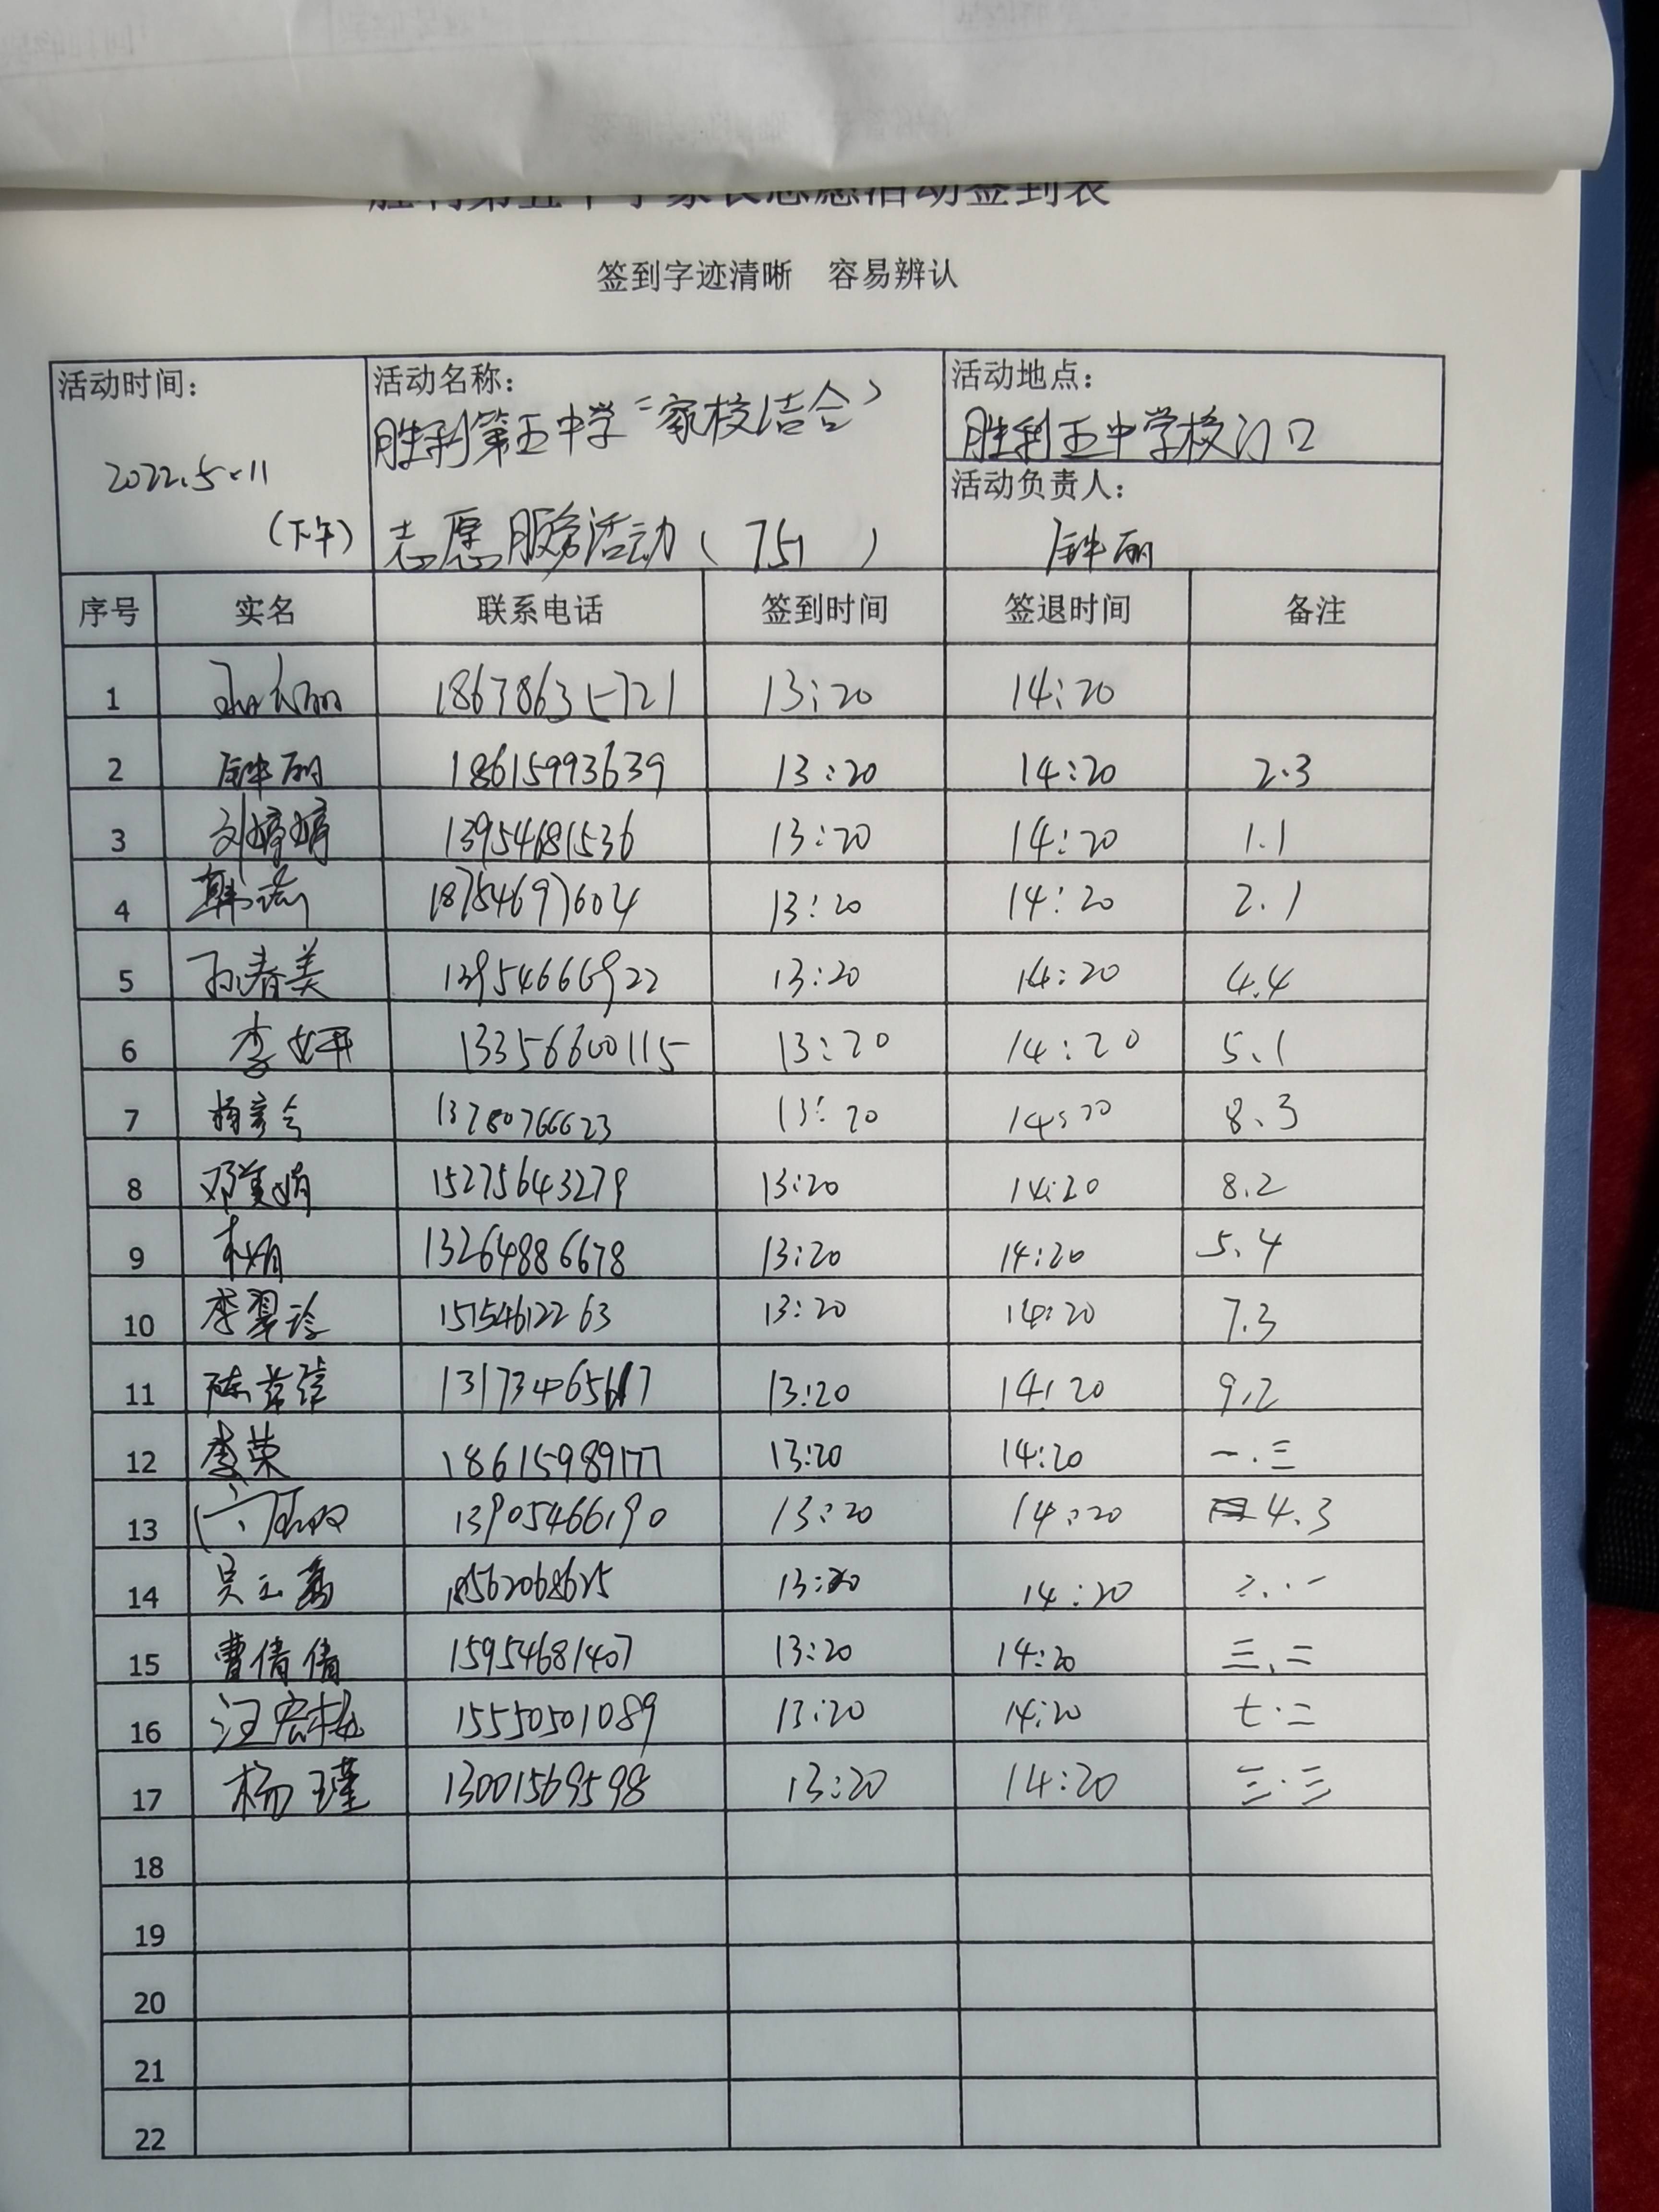 胜利第五中学家长志愿活动签到表
签到字迹清晰 容易辨认
活动时间：
2022.5.11
(下午)
活动名称：
胜利第五中学“家校结合”
志愿服务活动（751）
活动地点：
胜利五中学校门口
活动负责人：
丽
序号 实名 联系电话 签到时间 签退时间 备注
1 18678631721 13:20 14:20
2 丽 18615993639 13:20 14:20 2.3
3 刘婷婷 13954681536 13:20 14:20 1.1
4 韩 18754697604 13:20 14:20 2.1
5 孙春美 13954666922 13:20 14:20 4.4
6 李妍 13356600115 13:20 14:20 5.1
7 杨彦令 13780766623 13:20 14:20 8.3
8 邓美娟 15275643279 13:20 14:20 8.2
9 娟 13264886678 13:20 14:20 5.4
10 李翠珍 15154612263 13:20 14:20 7.3
11 陈 13:20 14:20 9.2
12 李荣 18615989177 13:20 14:20 一.三
13 13905466190 13:20 14:20 4.3
14 吴 18562068625 13:20 14:20
15 曹倩倩 15954681407 13:20 14:20 三、二
16 汪宏梅 15550501089 13:20 14:20 七.二
17 杨瑾 13001569598 13:20 14:20 三.三
18
19
20
21
22